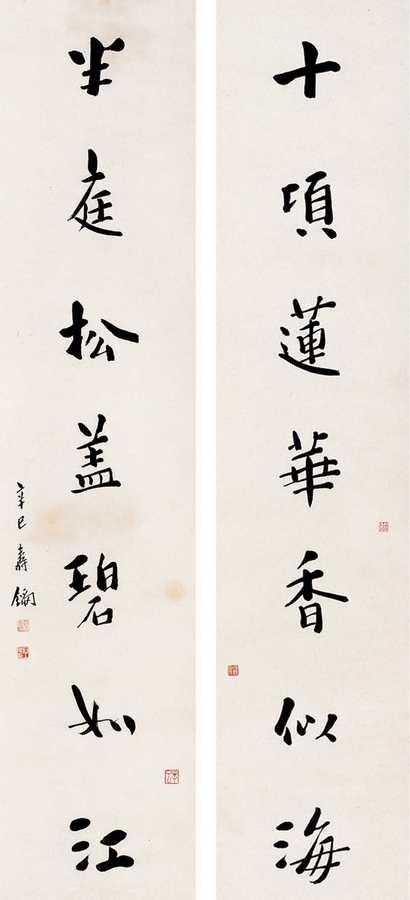 十頃蓮華香似海
半庭松盖碧如江
辛巳壽鑈